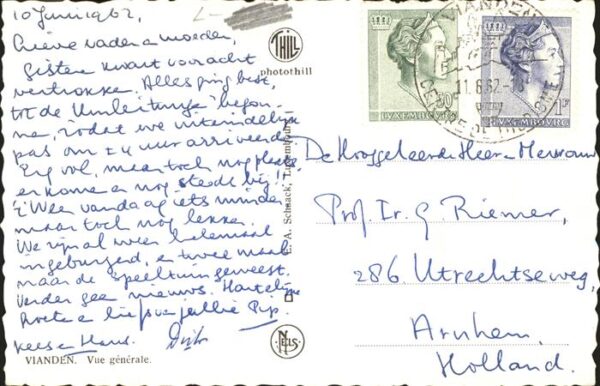 10 Juni 1962,
Lieve vader en moeder,
Gisteren kwart voor acht
vertrokken. Alles ging best,
tot de "Umleitungs" begon-
nen, zodat we uiteindelijk
pas om ± 4 uur arriveerden.
Erg vol, maar toch nog plaats
er komen er nog steeds bij!!!
't Weer vandaag iets minder
maar toch nog lekker.
We zijn al weer helemaal
ingeburgerd, en twee maal
naar de speeltuin geweest.
Verder geen nieuws. Hartelijke
groeten en liefs van jullie Pip,
Kees en Hans. Dirk
VIANDEN. Vue générale.
THILL
photothill
E. A. Schaack, Luxembourg
NELS
50c
LUXEMBOURG
1F
LUXEMBOURG
VIANDEN
11.6.62
CENTRE DE TOURISME
De Hooggeleerde Heer en Mevrouw
Prof. Ir. G. Riemer,
286. Utrechtseweg,
Arnhem.
Holland.